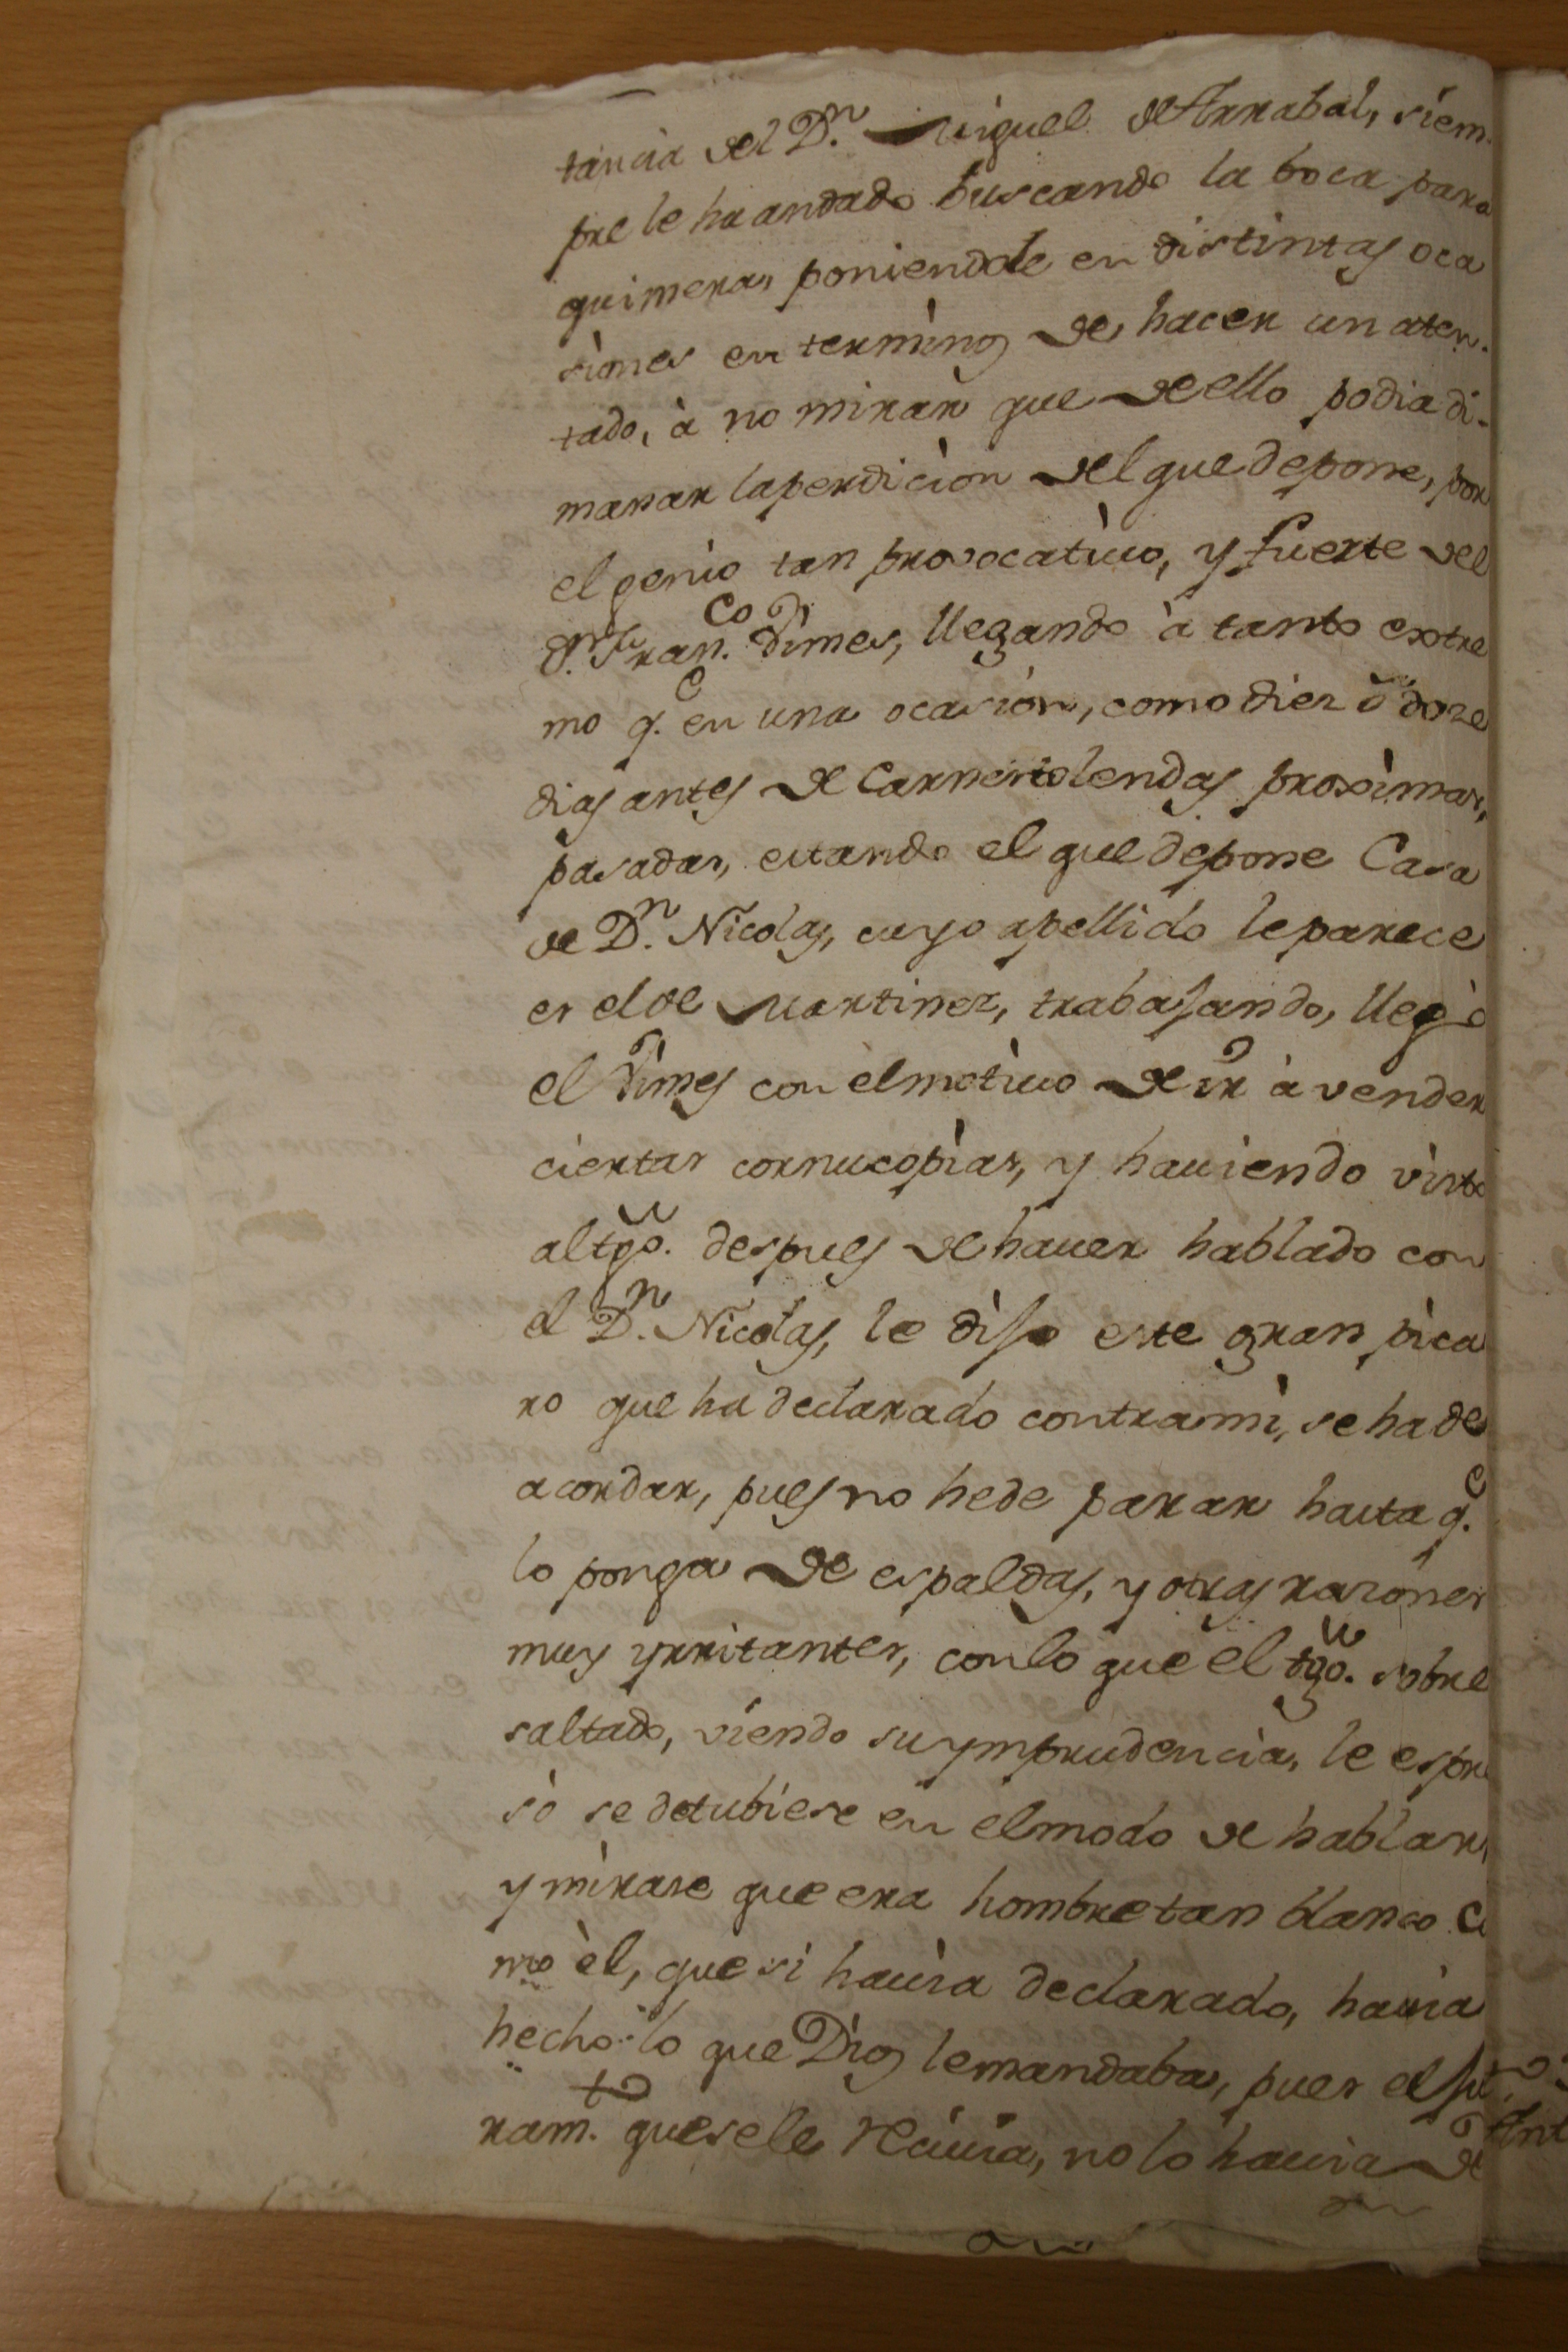 tancia del Dn. Miguel de Arrabal, siem-
pre le ha andado buscando la boca para
quimera, poniendole en distintas oca
siones en terminos de hacer un aten-
tado, à no mirar que de ello podia di-
manar la perdicion del que depone, por
el genio tan provocativo, y fuerte del
dn. Franco. Dimes, llegando à tanto extre
mo qe. en una ocasion, como diez ò doze
dias antes de Carnestolendas proximas,
pasadas, estando el que depone Casa
de Dn. Nicolas, cuyo apellido le parece
es el de Martinez, trabajando, llegò
el Dimes con el motivo de ir à vender
ciertas cornucopias, y haviendo visto
al tgo. despues de haver hablado con
el Dn. Nicolas, le dijo este gran pica
ro que ha declarado contra mi, se ha de
acordar, pues no he de parar hasta qe.
lo ponga de espaldas, y otras razones
muy yrritantes, con lo que el tgo. sobre
saltado, viendo su ymprudencia, le espre
sò se detubiese en el modo de hablar,
y mirase que era hombre tan blanco co
mo èl, que si havia declarado, havia
hecho lo que Dios le mandaba, pues el ju
ramto. que se le recivia, no lo havia de